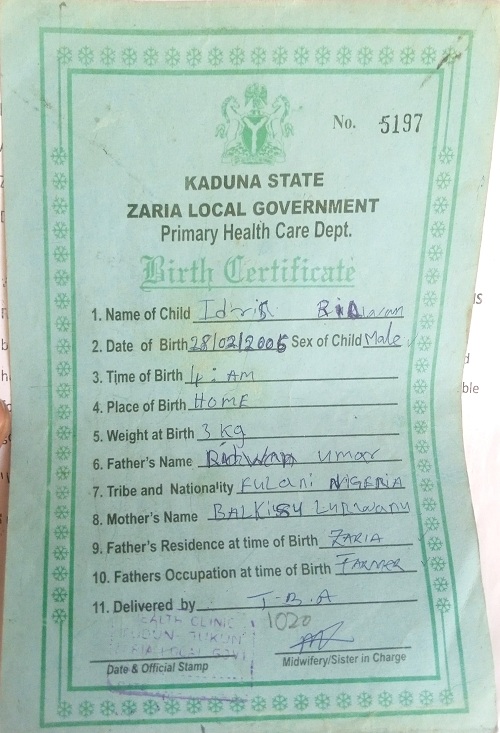 No. 5197
KADUNA STATE
ZARIA LOCAL GOVERNMENT
Primary Health Care Dept.
Birth Certificate
1. Name of Child Idris
2. Date of Birth 28/02/2006 Sex of Child Male
3. Time of Birth 4: AM
4. Place of Birth HOME
5. Weight at Birth 3 kg
6. Father's Name Ridwan Umar
7. Tribe and Nationality FULANI NIGERIA
8. Mother's Name BALKISU
9. Father's Residence at time of Birth ZARIA
10. Fathers Occupation at time of Birth FARMER
11. Delivered by T.B.A
1020
Date & Official Stamp
Midwifery/Sister in Charge